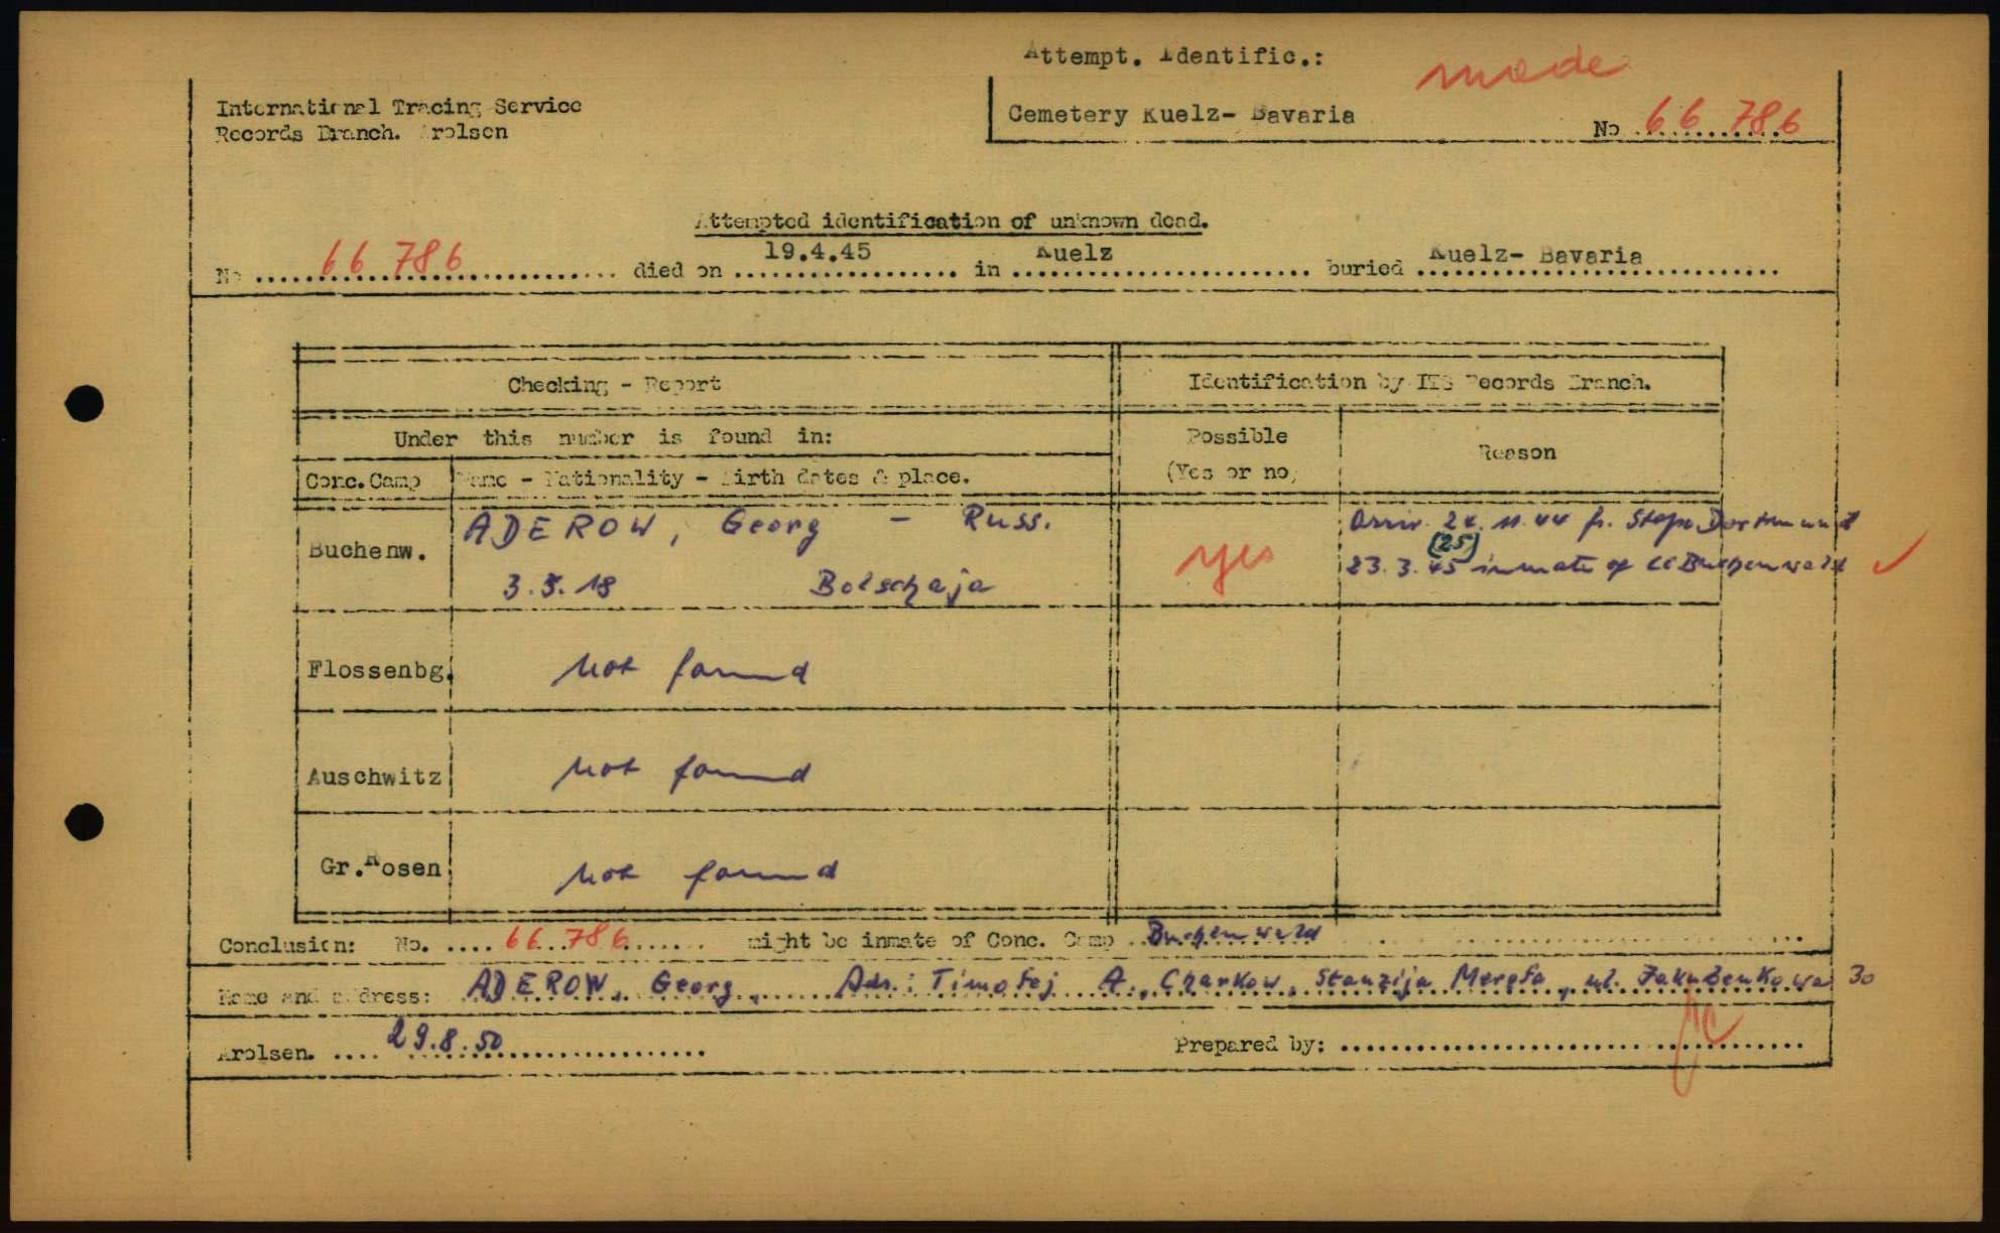 Attempt. Identific.: made
International Tracing Service
Cemetery Kuelz- Bavaria
Records Branch. Arolsen
No 66 786
Attempted identification of unknown dead.
No 66 786 died on 19.4.45 in Kuelz buried Kuelz- Bavaria
Checking - Report
Identification by ITS Records Branch.
Under this number is found in:
Possible
(Yes or no)
Reason
Conc.Camp Name - Nationality - Birth dates & place.
Buchenw.
ADEROW, Georg - Russ.
3.5.18 Bolschaja
yes
Arriv. 24.11.44 fr. Stapo Dortmund
(25)
23.3.45 inmate of CC Buchenwald
Flossenbg. not found
Auschwitz not found
Gr.Rosen not found
Conclusion: No. 66 786 might be inmate of Conc. Camp Buchenwald
Name and address: ADEROW, Georg, Adr.: Timofej A., Charkow, Stanzija Merefa, ul. 30
Arolsen. 29.8.50
Prepared by: